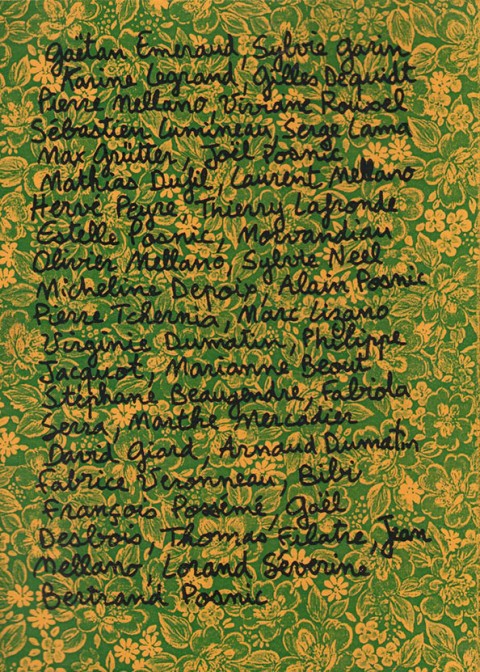 Gaëtan Emeraud, Sylvie Garin
Karine Legrand, Gilles Dequidt
Pierre Mellano, Viviane Roussel
Sébastien Lumineau, Serge Lama
Max Grütter, Joël Posnic
Mathias Dufil, Laurent Mellano
Hervé Peyre, Thierry Lafronde
Estelle Posnic, Malvandian
Olivier Mellano, Sylvie Néel
Micheline Depoix, Alain Posnic
Pierre Tchernia, Marc Lizano
Virginie Dumatin, Philippe
Jacquot, Marianne Beout
Stéphane Beaugendre, Fabiola
Serra, Marthe Mercadier
David Giard, Arnaud Dumatin
Fabrice Veronneau, Bibi
François Possémé, Gaël
Desbois, Thomas Fulatre, Jean
Mellano, Lorand Séverine
Bertrand Posnic